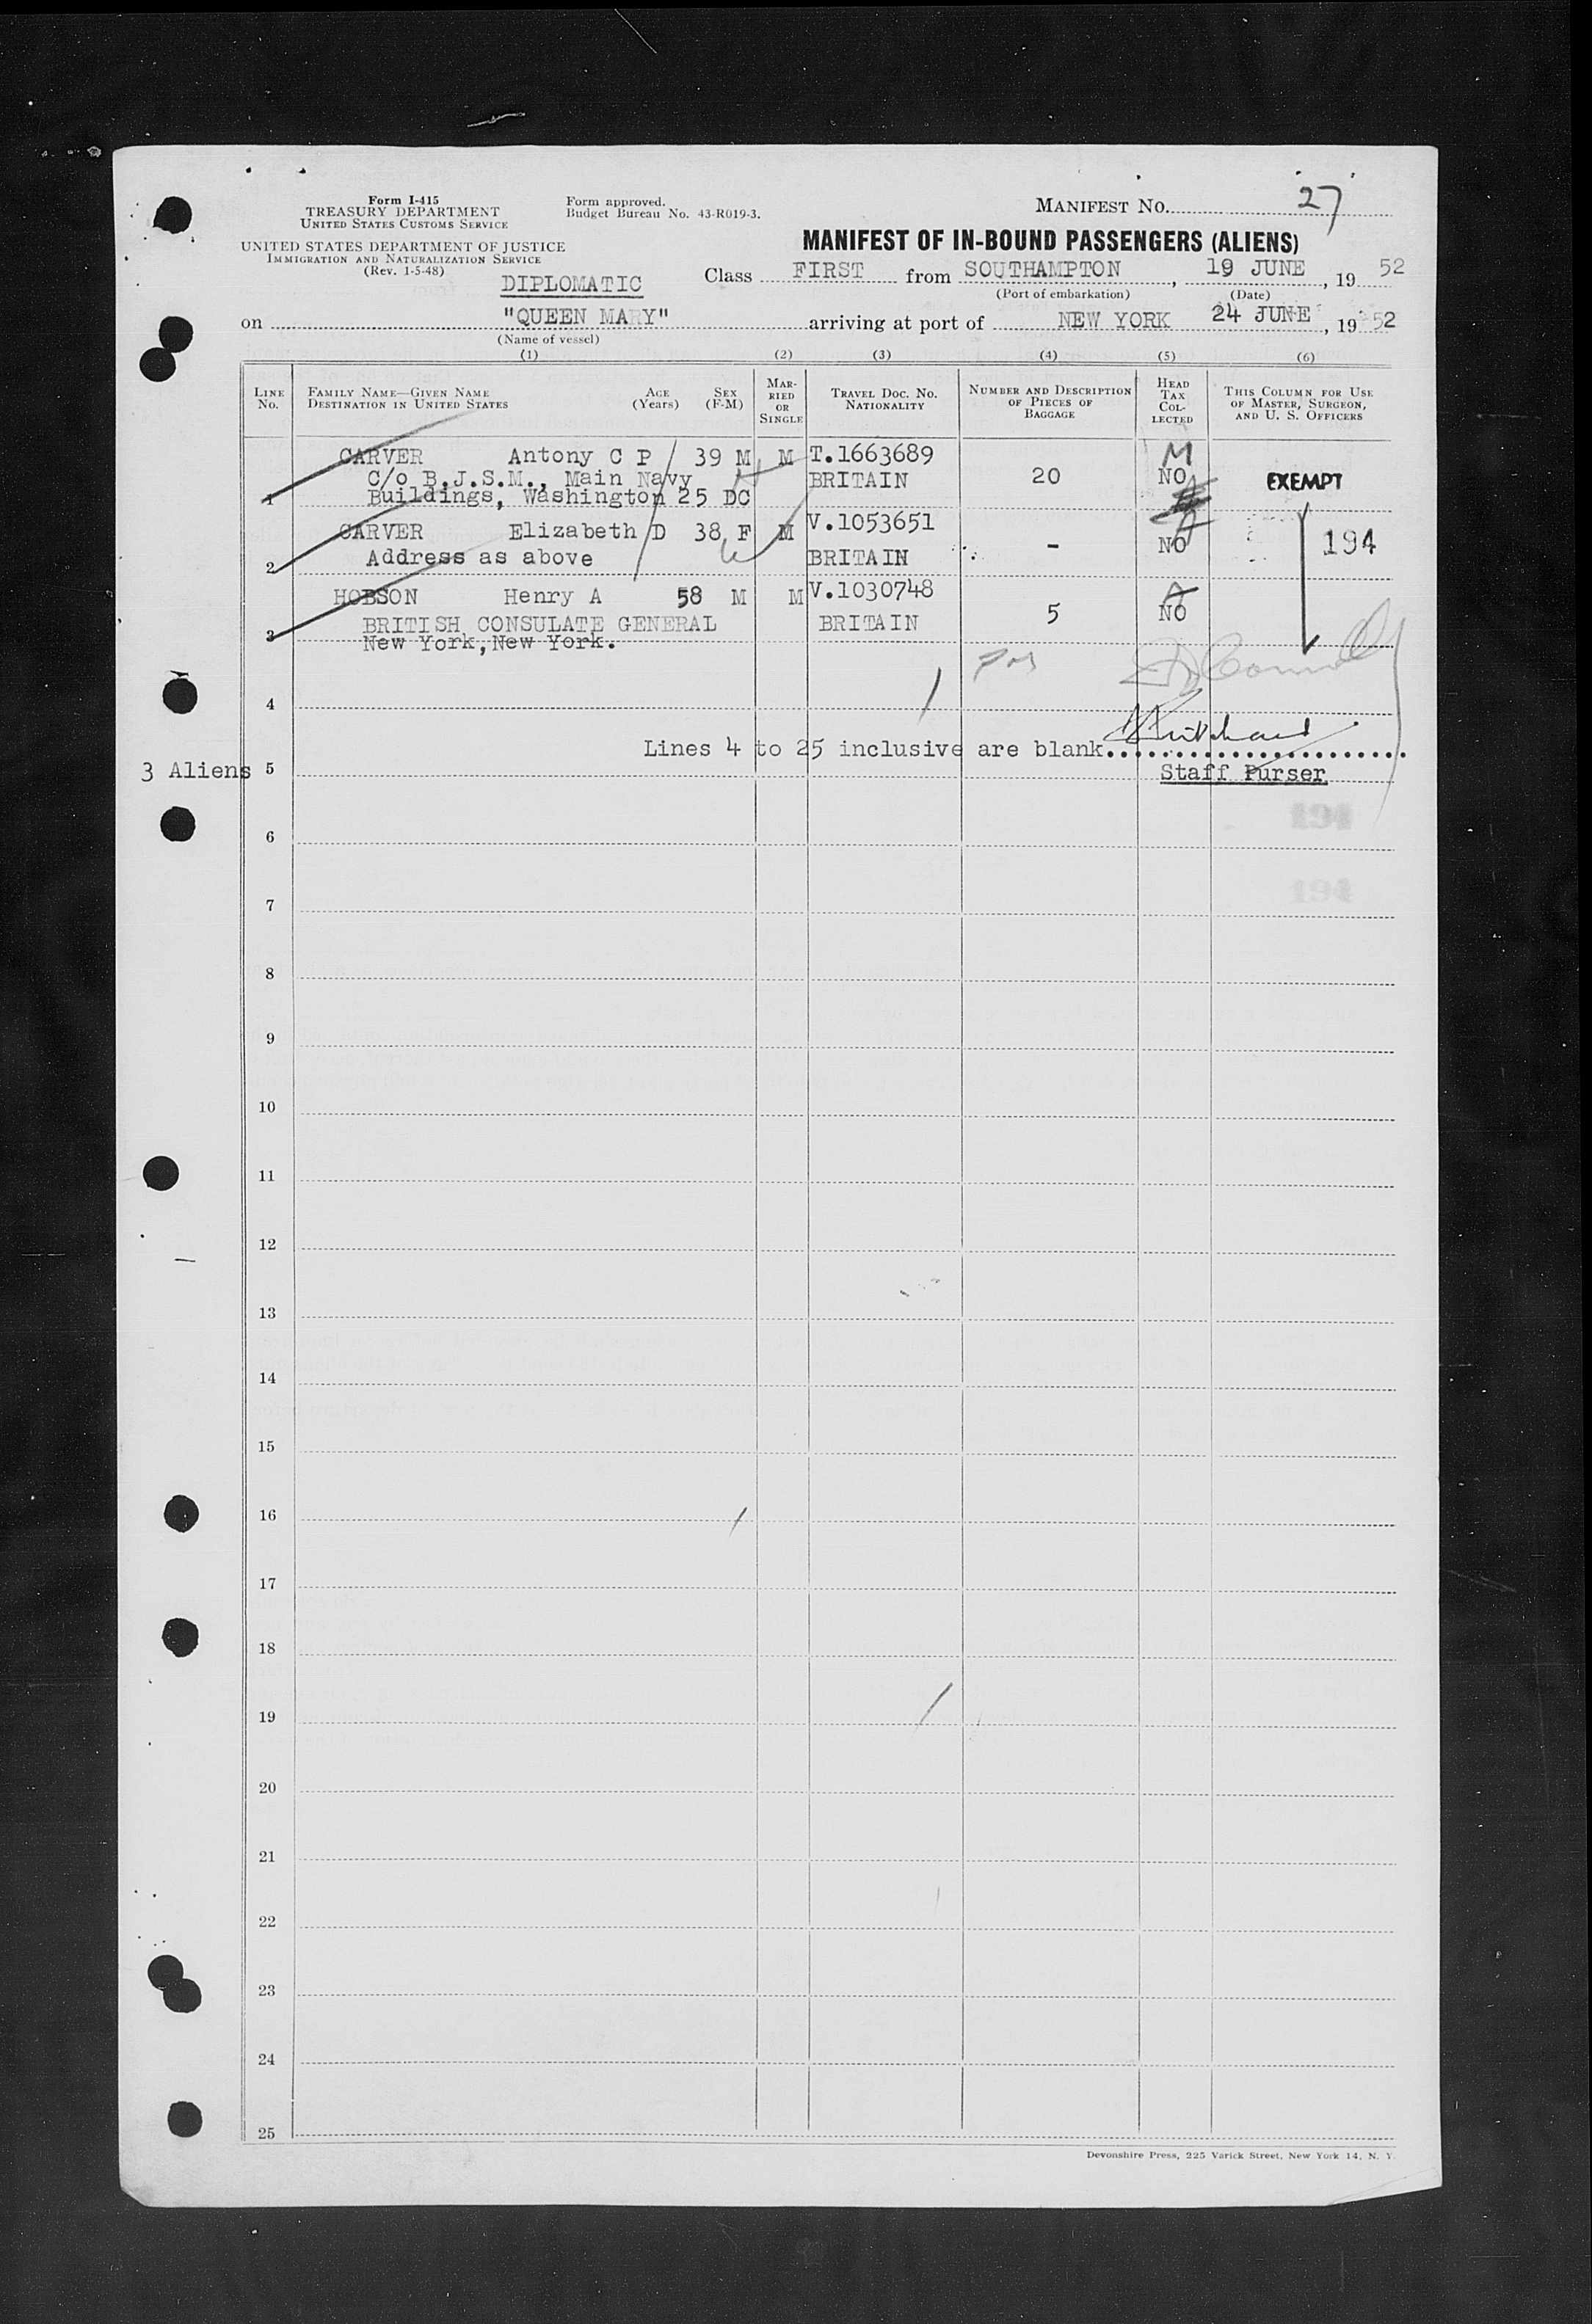 Form I-415
TREASURY DEPARTMENT
UNITED STATES CUSTOMS SERVICE
Form approved.
Budget Bureau No. 43-R019-3.
MANIFEST NO. 27
UNITED STATES DEPARTMENT OF JUSTICE
IMMIGRATION AND NATURALIZATION SERVICE
(Rev. 1-5-48)
MANIFEST OF IN-BOUND PASSENGERS (ALIENS)
DIPLOMATIC
Class FIRST from SOUTHAMPTON, 19 JUNE, 19 52
(Port of embarkation) (Date)
on "QUEEN MARY" arriving at port of NEW YORK 24 JUNE, 19 52
(Name of vessel)
(1) (2) (3) (4) (5) (6)
LINE NO.
FAMILY NAME—GIVEN NAME
DESTINATION IN UNITED STATES
AGE (Years)
SEX (F-M)
MARRIED OR SINGLE
TRAVEL DOC. NO.
NATIONALITY
NUMBER AND DESCRIPTION OF PIECES OF BAGGAGE
HEAD TAX COLLECTED
THIS COLUMN FOR USE OF MASTER, SURGEON, AND U. S. OFFICERS
CARVER Antony C P 39 M M T.1663689 M
C/o B.J.S.M., Main Navy BRITAIN 20 NO EXEMPT
1 Buildings, Washington 25 DC
CARVER Elizabeth D 38 F M V.1053651
2 Address as above BRITAIN - NO 194
HOBSON Henry A 58 M M V.1030748
BRITISH CONSULATE GENERAL BRITAIN 5 NO
3 New York, New York.
4
Lines 4 to 25 inclusive are blank. Pritchard
3 Aliens 5 Staff Purser
6
7
8
9
10
11
12
13
14
15
16
17
18
19
20
21
22
23
24
25
Devonshire Press, 225 Varick Street, New York 14, N. Y.